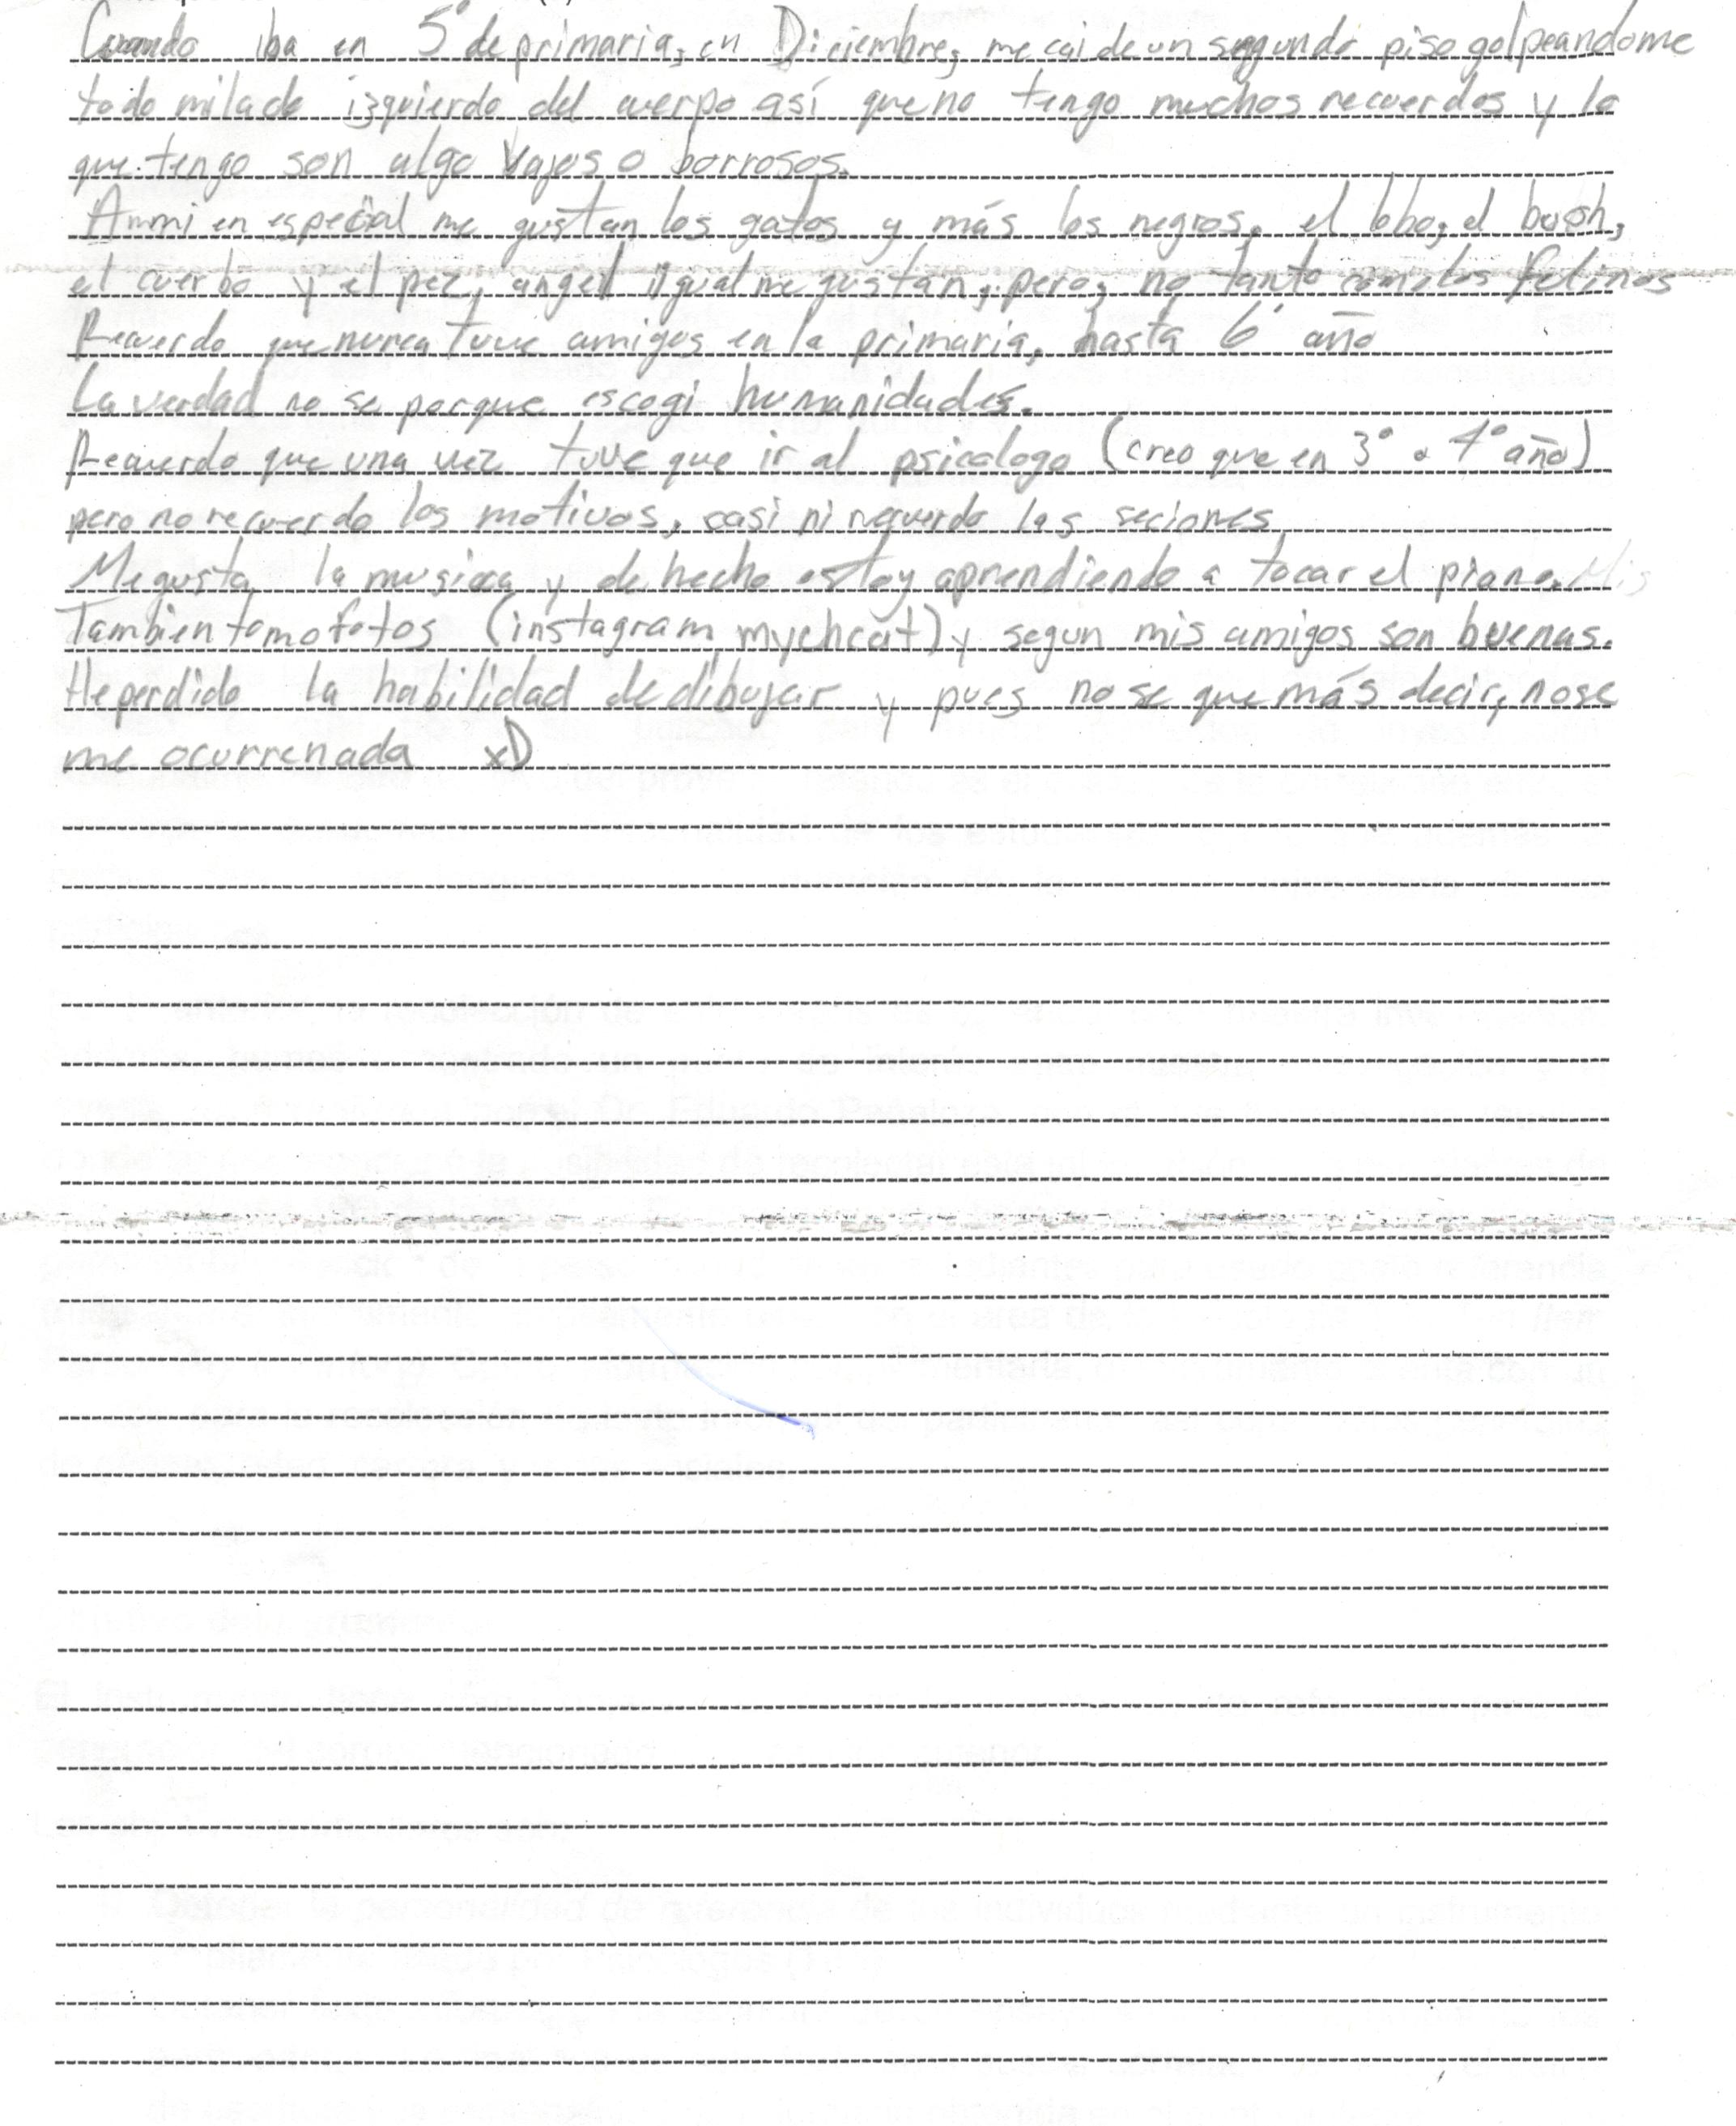 Cuando iba en 5° de primaria, en Diciembre, me cai de un segundo piso golpeandome
todo mi lado izquierdo del cuerpo así que no tengo muchos recuerdos y lo
que tengo son algo vagos o borrosos.
A mi en especial me gustan los gatos y más los negros, el lobo, el
el cuerbo y el pez, angel igual me gustan, pero, no tanto como los felinos
Recuerdo que nunca tuve amigos en la primaria, hasta 6° año
La verdad no se porque escogi humanidades.
Recuerdo que una vez tuve que ir al psicologo (creo que en 3° o 4° año)
pero no recuerdo los motivos, casi ni recuerdo las seciones
Me gusta la musica y de hecho estoy aprendiendo a tocar el piano. Mis
Tambien tomo fotos (instagram mychcat) y segun mis amigos son buenas.
He perdido la habilidad de dibujar y pues no se que más decir, no se
me ocurre nada xD